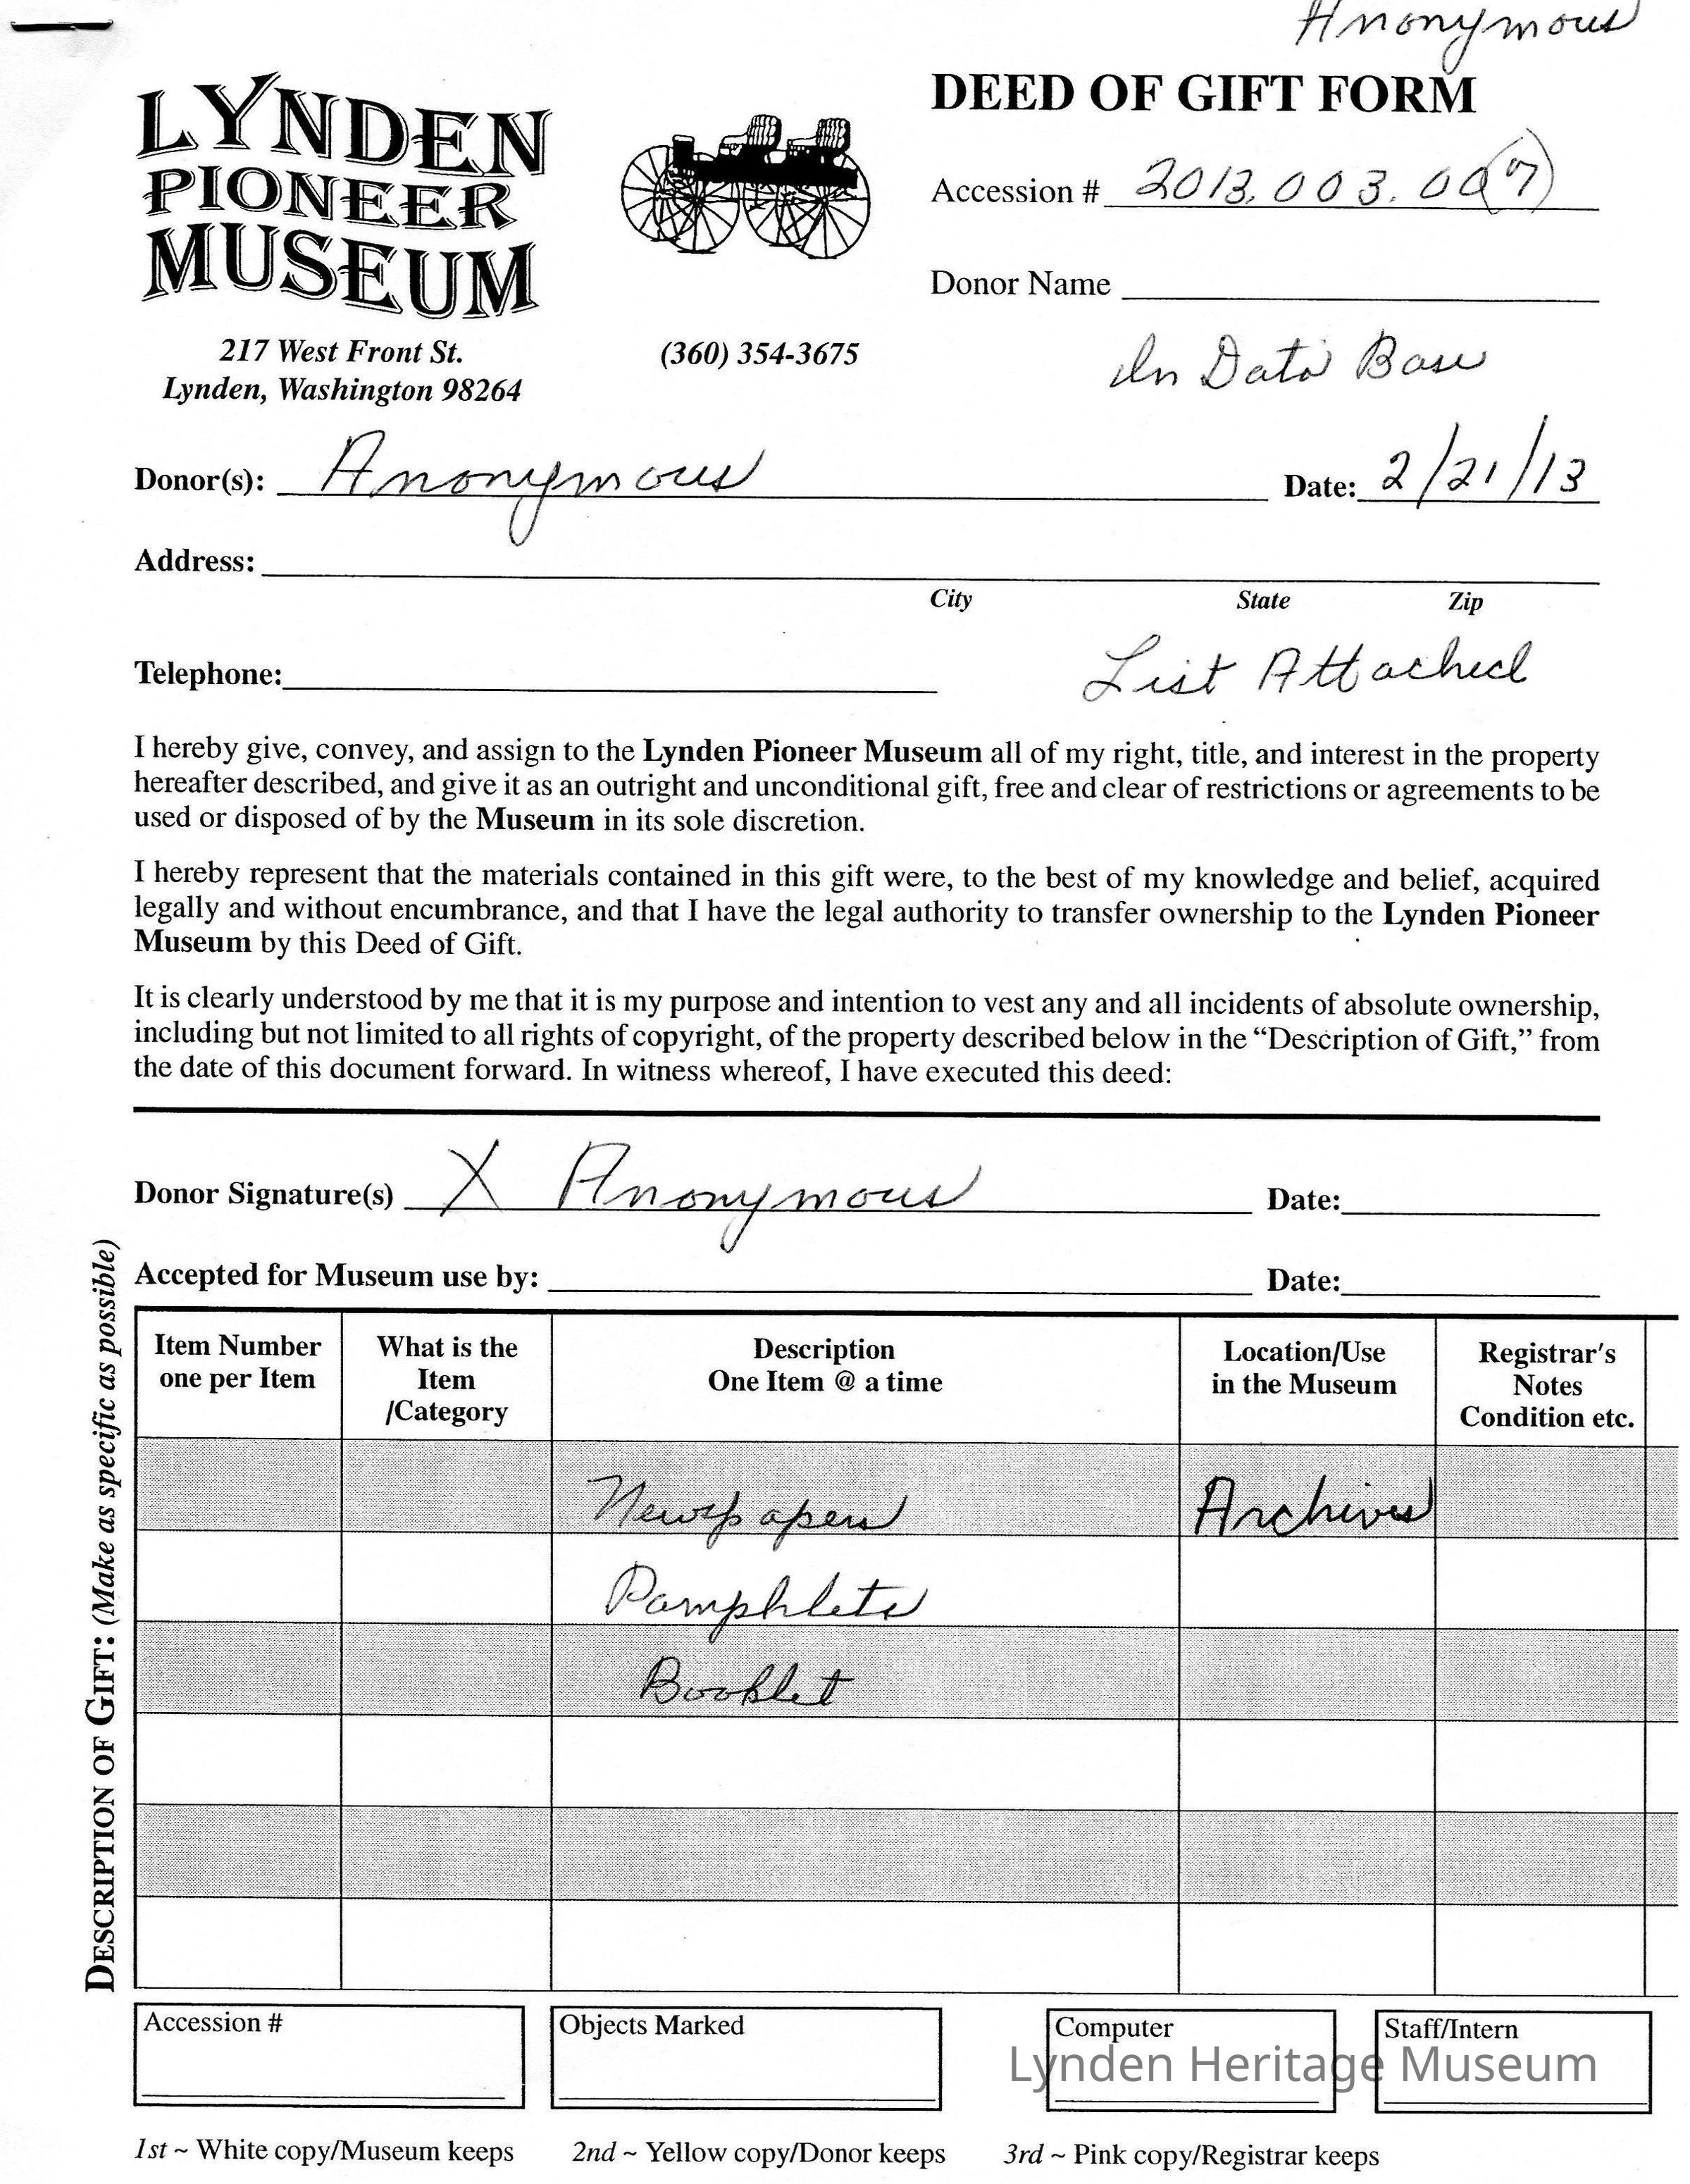 Anonymous
LYNDEN
PIONEER
MUSEUM
217 West Front St.
Lynden, Washington 98264
(360) 354-3675
DEED OF GIFT FORM
Accession # 2013.003.00(7)
Donor Name
In Data Base
Donor(s): Anonymous Date: 2/21/13
Address:
City State Zip
Telephone: List Attached
I hereby give, convey, and assign to the Lynden Pioneer Museum all of my right, title, and interest in the property
hereafter described, and give it as an outright and unconditional gift, free and clear of restrictions or agreements to be
used or disposed of by the Museum in its sole discretion.
I hereby represent that the materials contained in this gift were, to the best of my knowledge and belief, acquired
legally and without encumbrance, and that I have the legal authority to transfer ownership to the Lynden Pioneer
Museum by this Deed of Gift.
It is clearly understood by me that it is my purpose and intention to vest any and all incidents of absolute ownership,
including but not limited to all rights of copyright, of the property described below in the “Description of Gift,” from
the date of this document forward. In witness whereof, I have executed this deed:
Donor Signature(s) X Anonymous Date:
Accepted for Museum use by: Date:
DESCRIPTION OF GIFT: (Make as specific as possible)
Item Number
one per Item
What is the
Item
/Category
Description
One Item @ a time
Location/Use
in the Museum
Registrar's
Notes
Condition etc.
Newspapers Archives
Pamphlets
Booklet
Accession # Objects Marked Computer Staff/Intern
Lynden Heritage Museum
1st ~ White copy/Museum keeps 2nd ~ Yellow copy/Donor keeps 3rd ~ Pink copy/Registrar keeps